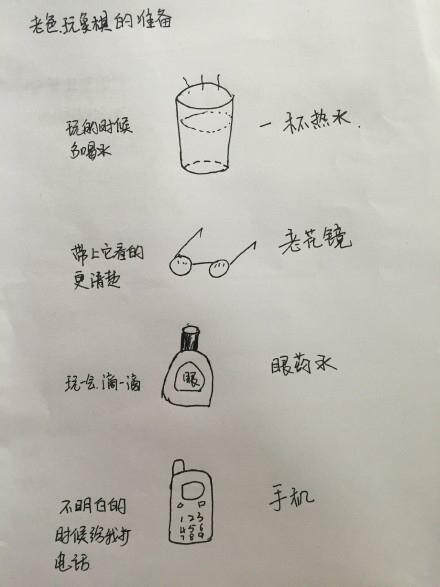 老爸玩象棋的准备
玩的时候
多喝水
一杯热水.
带上它看的
更清楚
老花镜
玩一会.滴一滴
眼
眼药水
不明白的
时候给我打
电话
123
456
789
手机